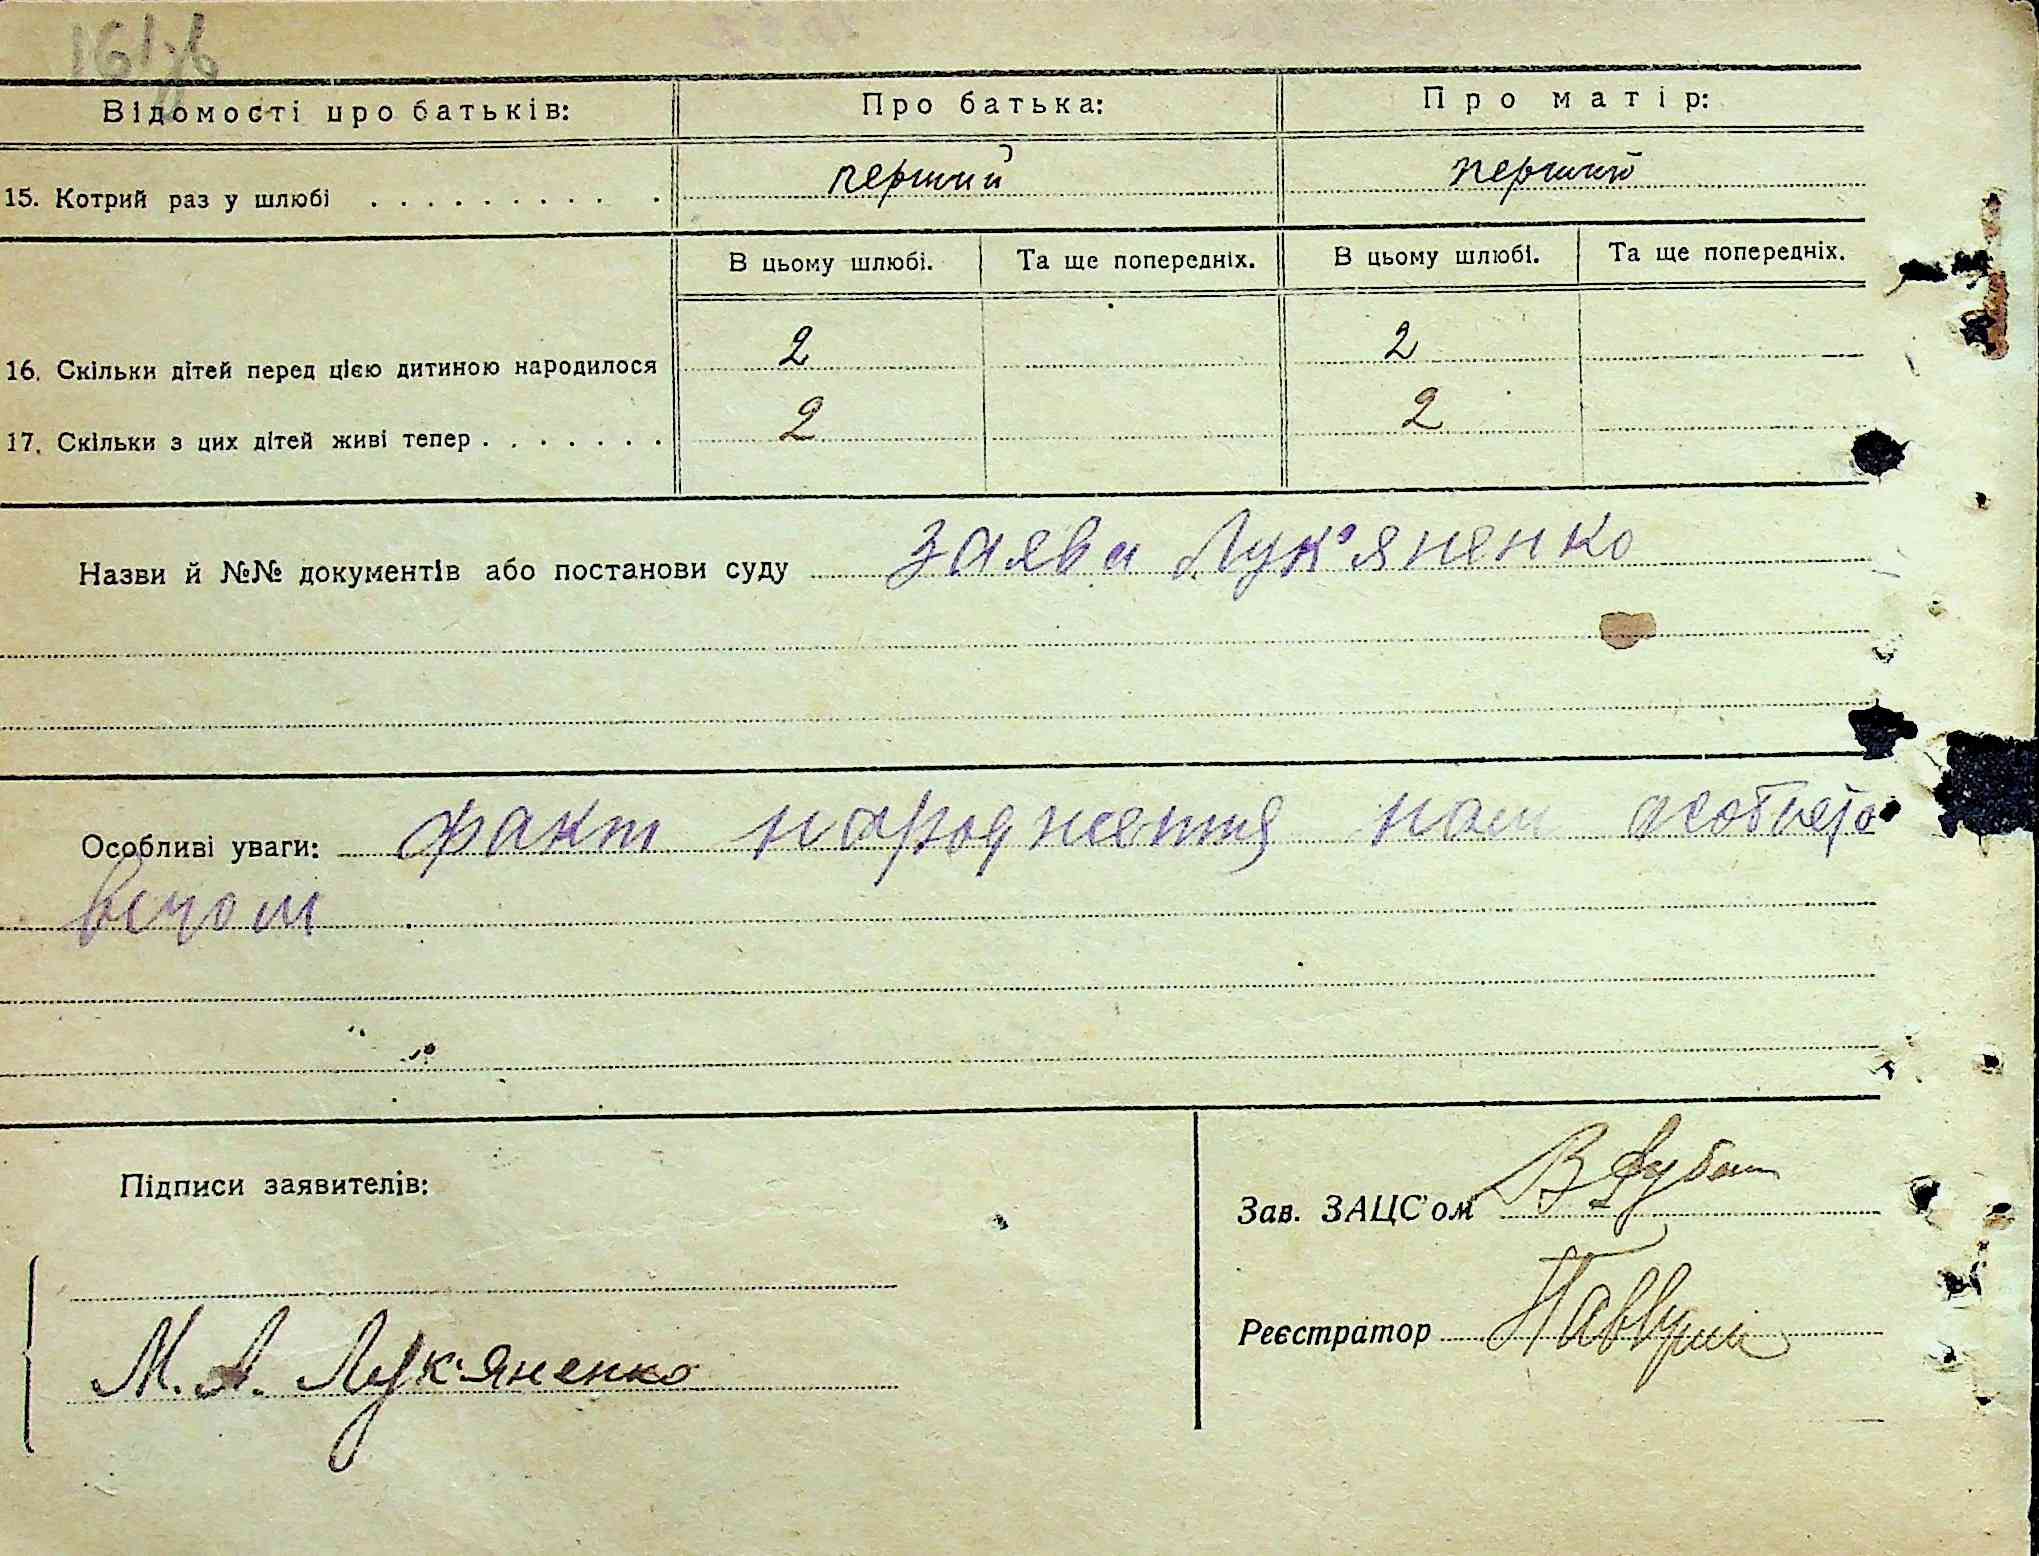 161 зв
Відомості про батьків: Про батька: Про матір:
15. Котрий раз у шлюбі . . . . . . . . . . . перший перший
В цьому шлюбі. Та ще попередніх. В цьому шлюбі. Та ще попередніх.
16. Скільки дітей перед цією дитиною народилося 2 2
17. Скільки з цих дітей живі тепер . . . . . . . 2 2
Назви й №№ документів або постанови суду заява Лук'яненко
Особливі уваги: факт народження нам
Підписи заявителів:
Зав. ЗАЦС'ом
Реєстратор
М. А. Лук'яненко